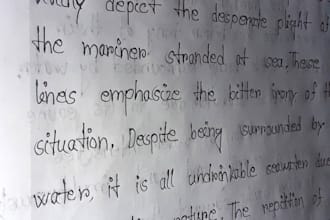 depict the desperate plight of
the mariner stranded at sea. These
lines emphasize the bitter irony of
situation. Despite being surrounded by
water, it is all undrinkable seawater due
The repition of